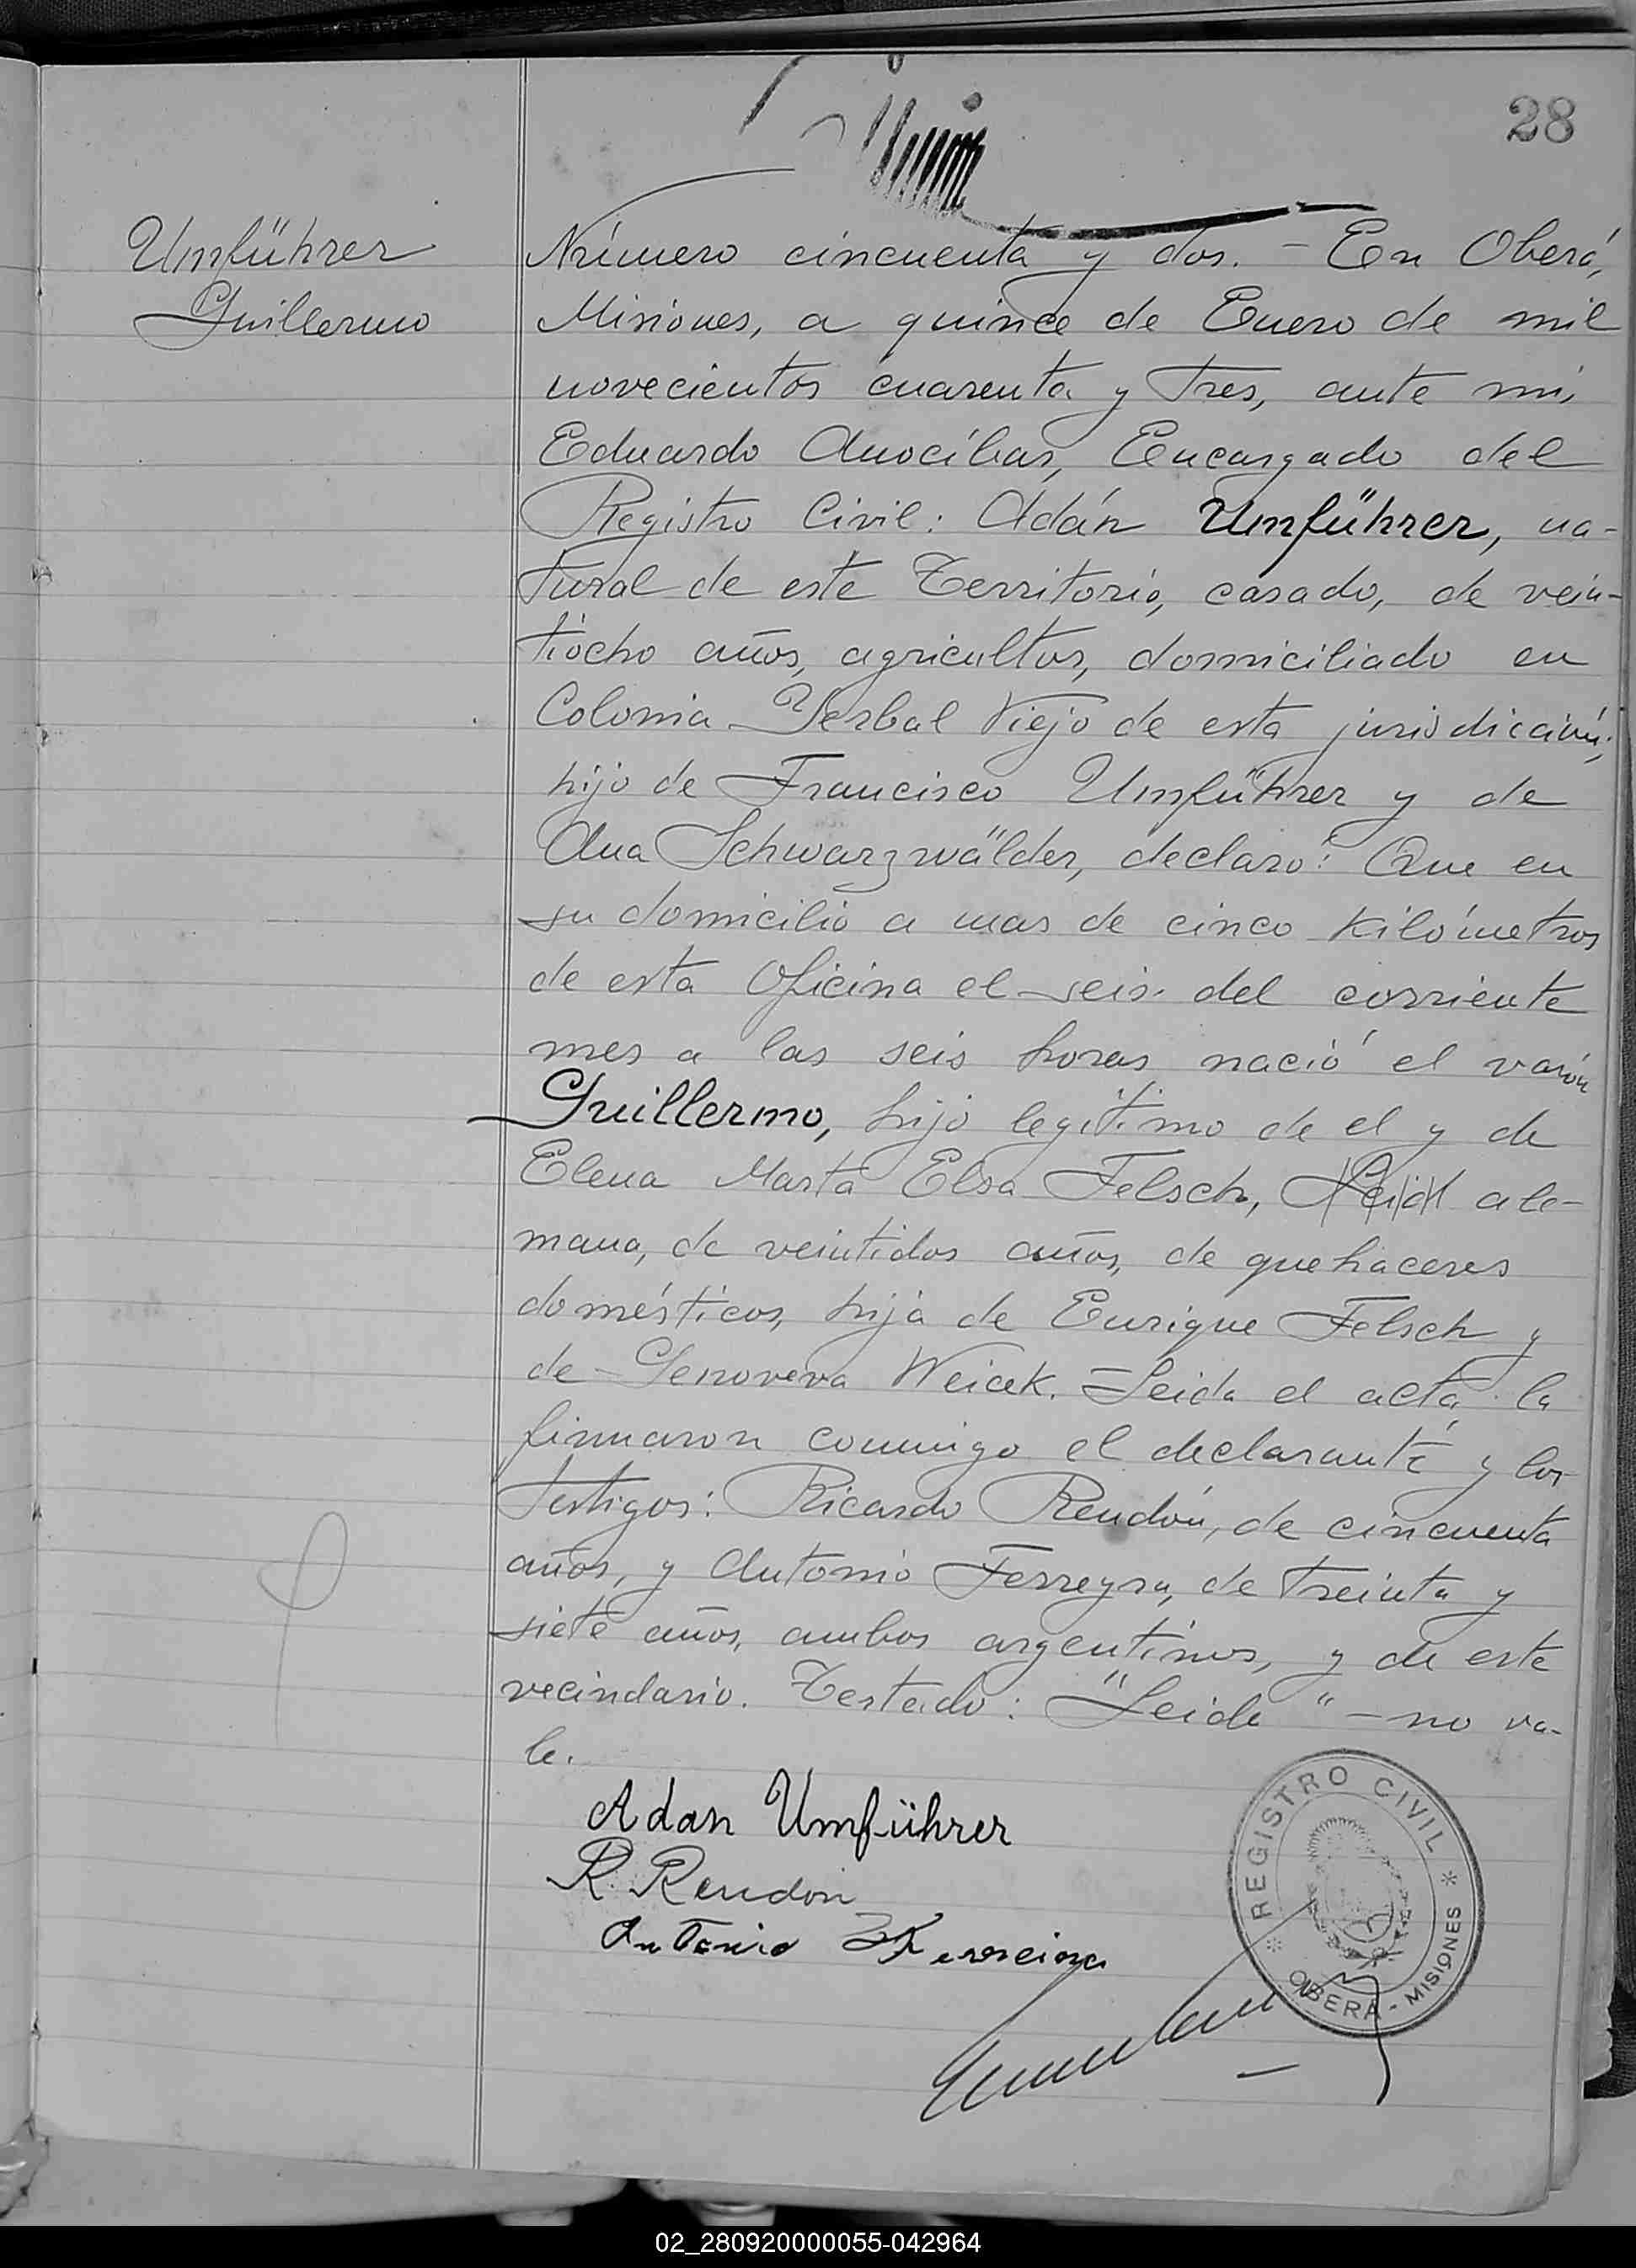 28
Umführer
Guillermo
Número cincuenta y dos. - En Oberá,
Misiones, a quince de Enero de mil
novecientos cuarenta y tres, ante mí,
Eduardo Anocíbar, Encargado del
Registro Civil: Adán Umführer, na-
tural de este Territorio, casado, de vein-
tiocho años, agricultor, domiciliado en
Colonia Yerbal Viejo de esta jurisdicción,
hijo de Francisco Umführer y de
Ana Schwarzwälder, declaró: Que en
su domicilio a mas de cinco kilómetros
de esta Oficina el seis del corriente
mes a las seis horas nació el varón
Guillermo, hijo legítimo de el y de
Elena Marta Elsa Felsch, Leida ale-
mana, de veintidos años, de quehaceres
domésticos, hija de Enrique Felsch y
de Genoveva Weicek. Leida el acta la
firmaron conmigo el declarante y los
testigos: Ricardo Rendón, de cincuenta
años, y Antonio Ferreyra, de treinta y
siete años, ambos argentinos, y de este
vecindario. Testado: "Leida" - no va-
le.
Adan Umführer
R. Rendon
Antonio Ferreira
REGISTRO CIVIL
OBERÁ - MISIONES
02_280920000055-042964